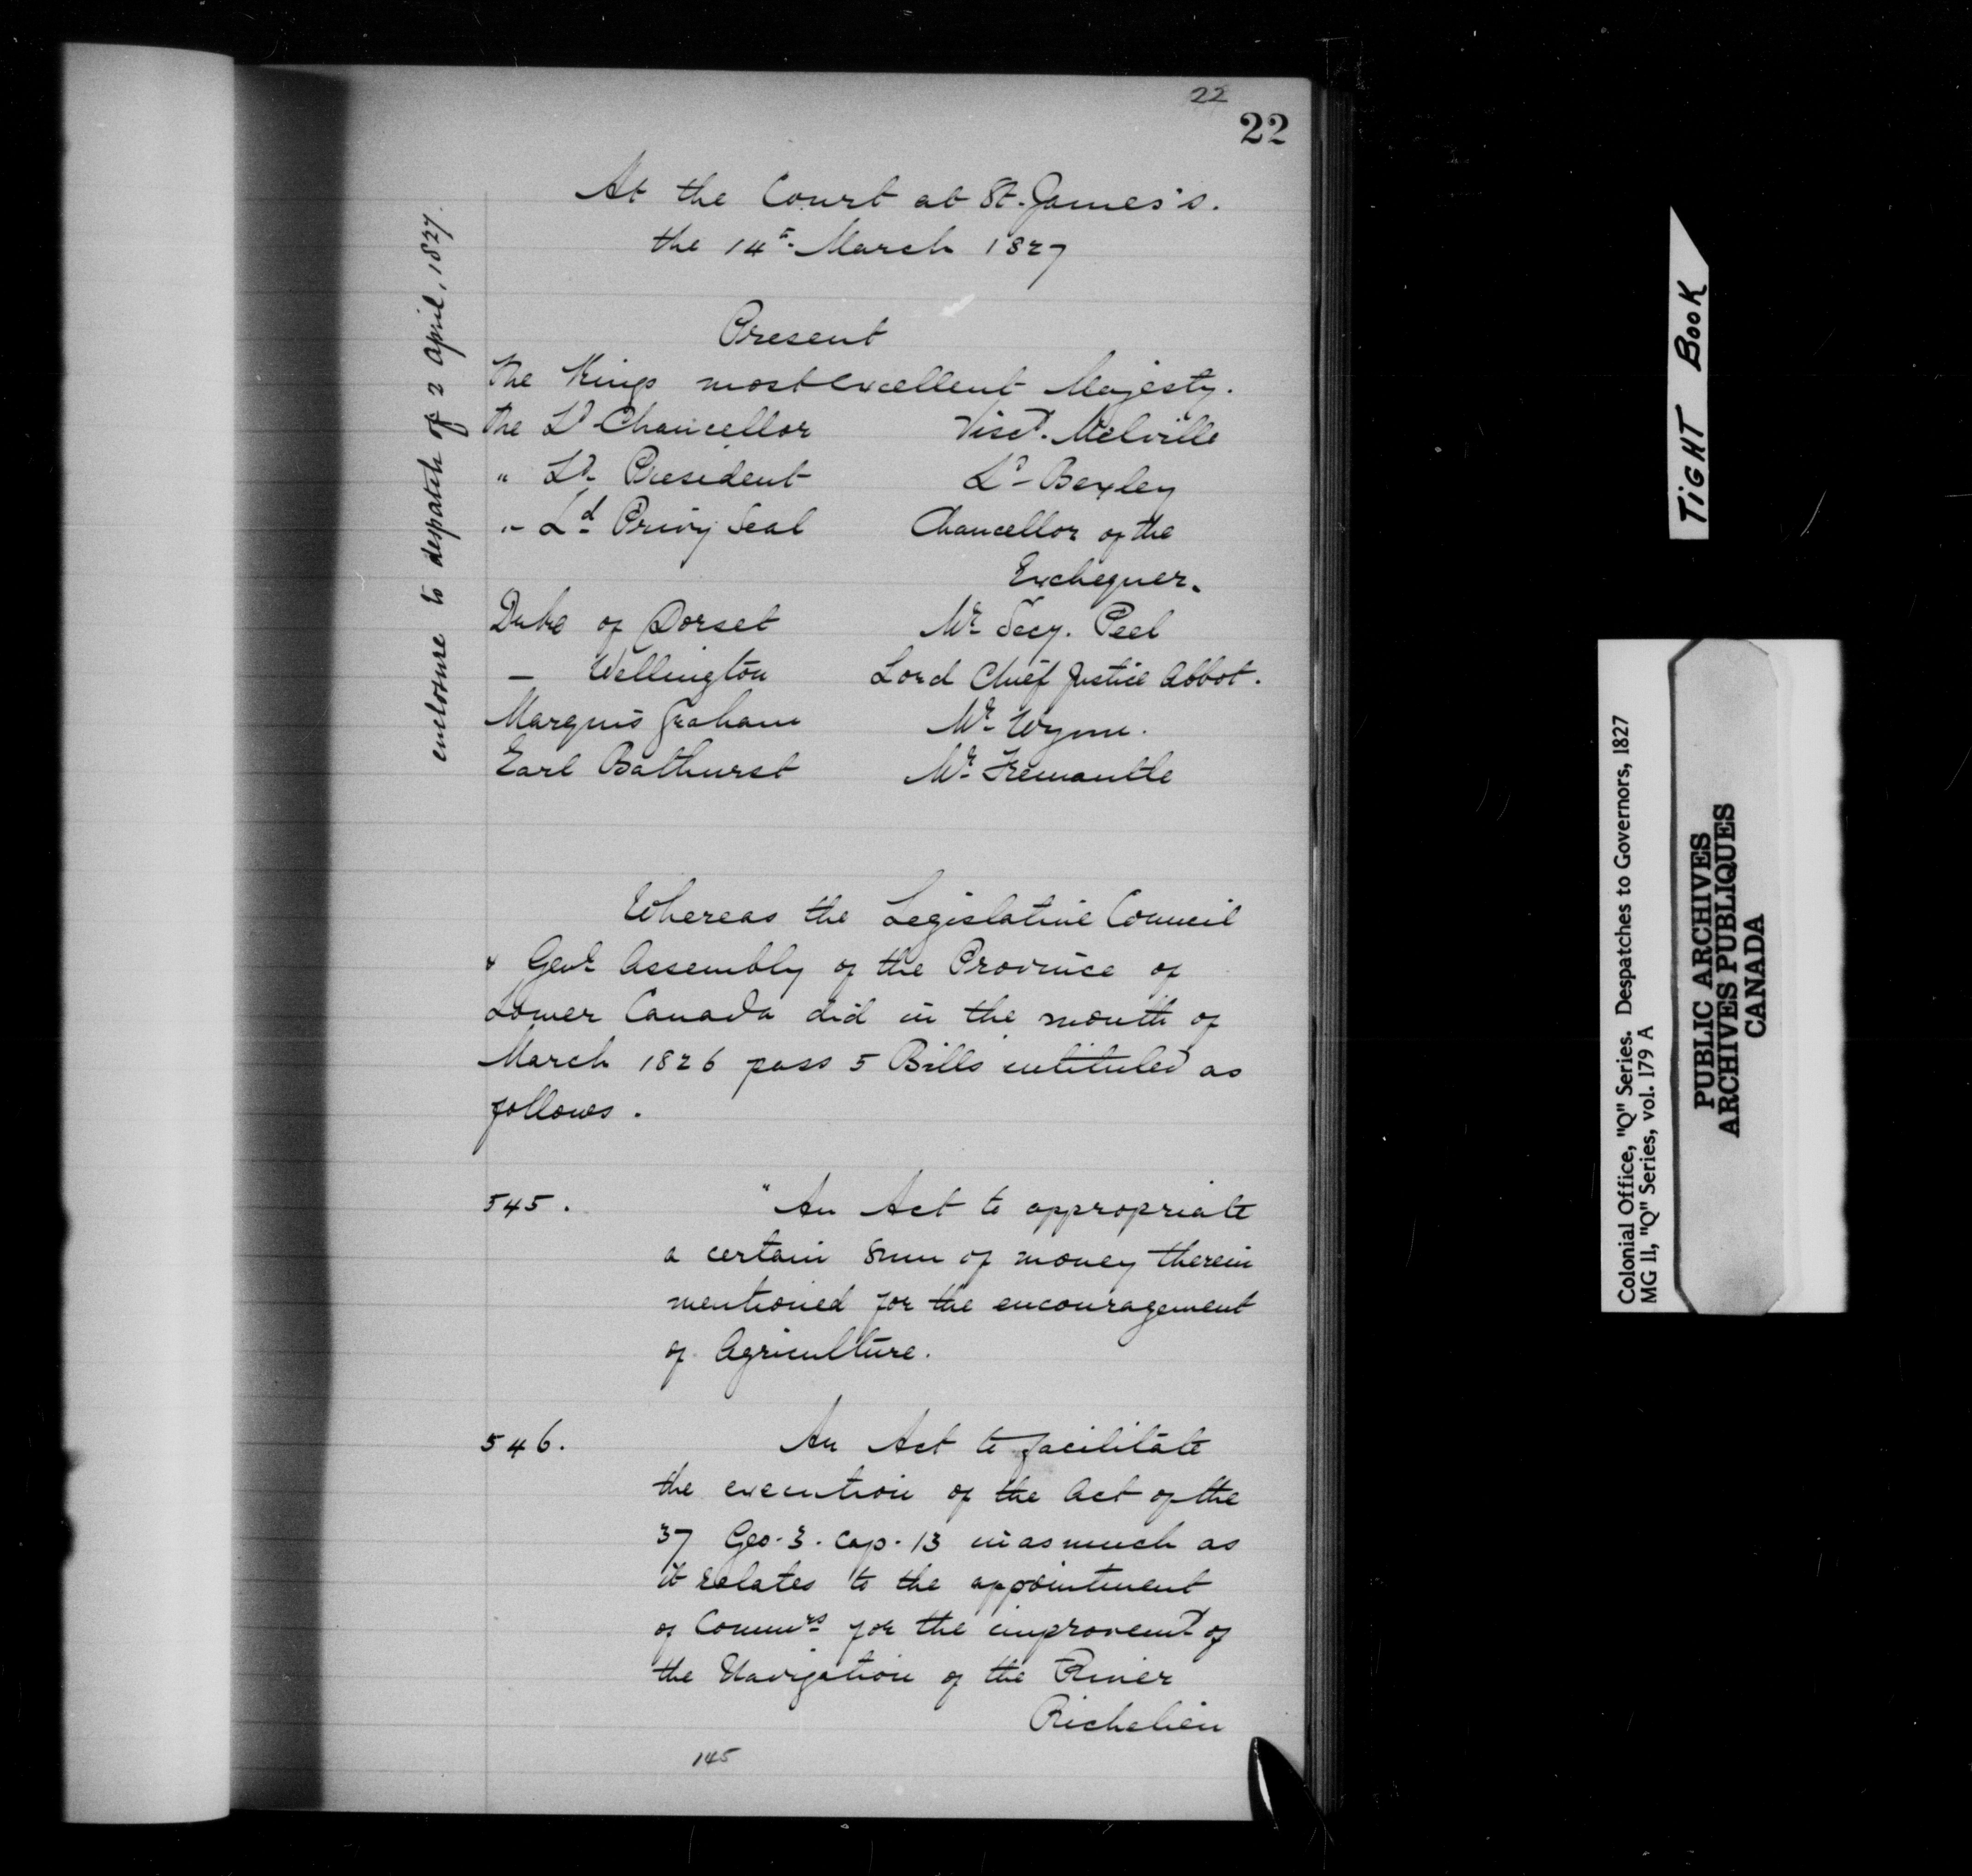 22
22
At the Court at St. James's.
the 14th March 1827
enclosure to despatch of 2 April, 1827.
Present
The Kings most Excellent Majesty.
The Ld Chancellor Visct. Melville
" Ld President Ld Bexley
" Ld Privy Seal Chancellor of the
Exchequer.
Duke of Dorset Mr Secy. Peel
— Wellington Lord Chief Justice Abbot.
Marquis Graham Mr Wynn.
Earl Bathurst Mr Fremantle
Whereas the Legislative Council
& Genl Assembly of the Province of
Lower Canada did in the month of
March 1826 pass 5 Bills intituled as
follows.
545. "An Act to appropriate
a certain sum of money therein
mentioned for the encouragement
of Agriculture.
546. An Act to facilitate
the execution of the Act of the
37 Geo. 3. Cap. 13 in as much as
it relates to the appointment
of Commrs for the improvemt of
the Navigation of the River
Richelieu
145
TIGHT BOOK
Colonial Office, "Q" Series. Despatches to Governors, 1827
MG 11, "Q" Series, vol. 179 A
PUBLIC ARCHIVES
ARCHIVES PUBLIQUES
CANADA